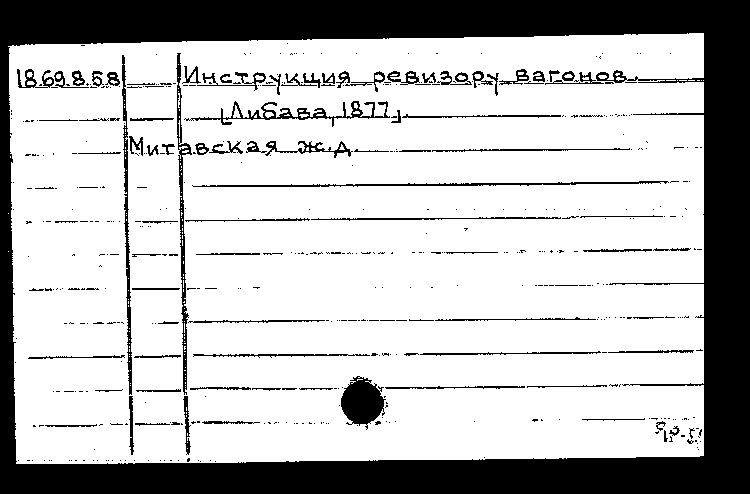 18.69.8.58 Инструкция ревизору вагонов.
[Либава, 1877].
Митавская ж.д.